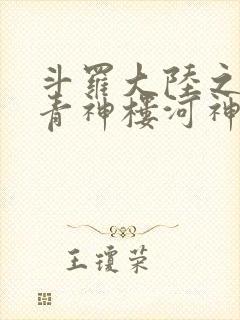 斗羅大陸之
青神樓河神
王瓊荣